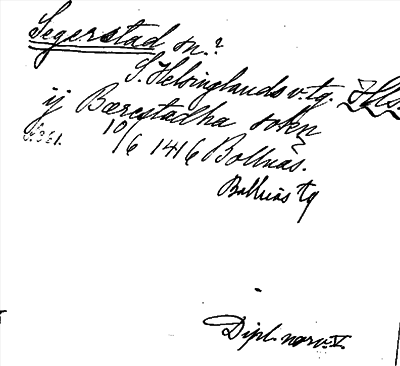 Segerstad sn.?
S. Helsinglands v. tg. Hls.
ij Bærestadha sokn
S. 361. 10/6 1416 Bollnäs.
Bollnäs tg
Dipl. norv. V.